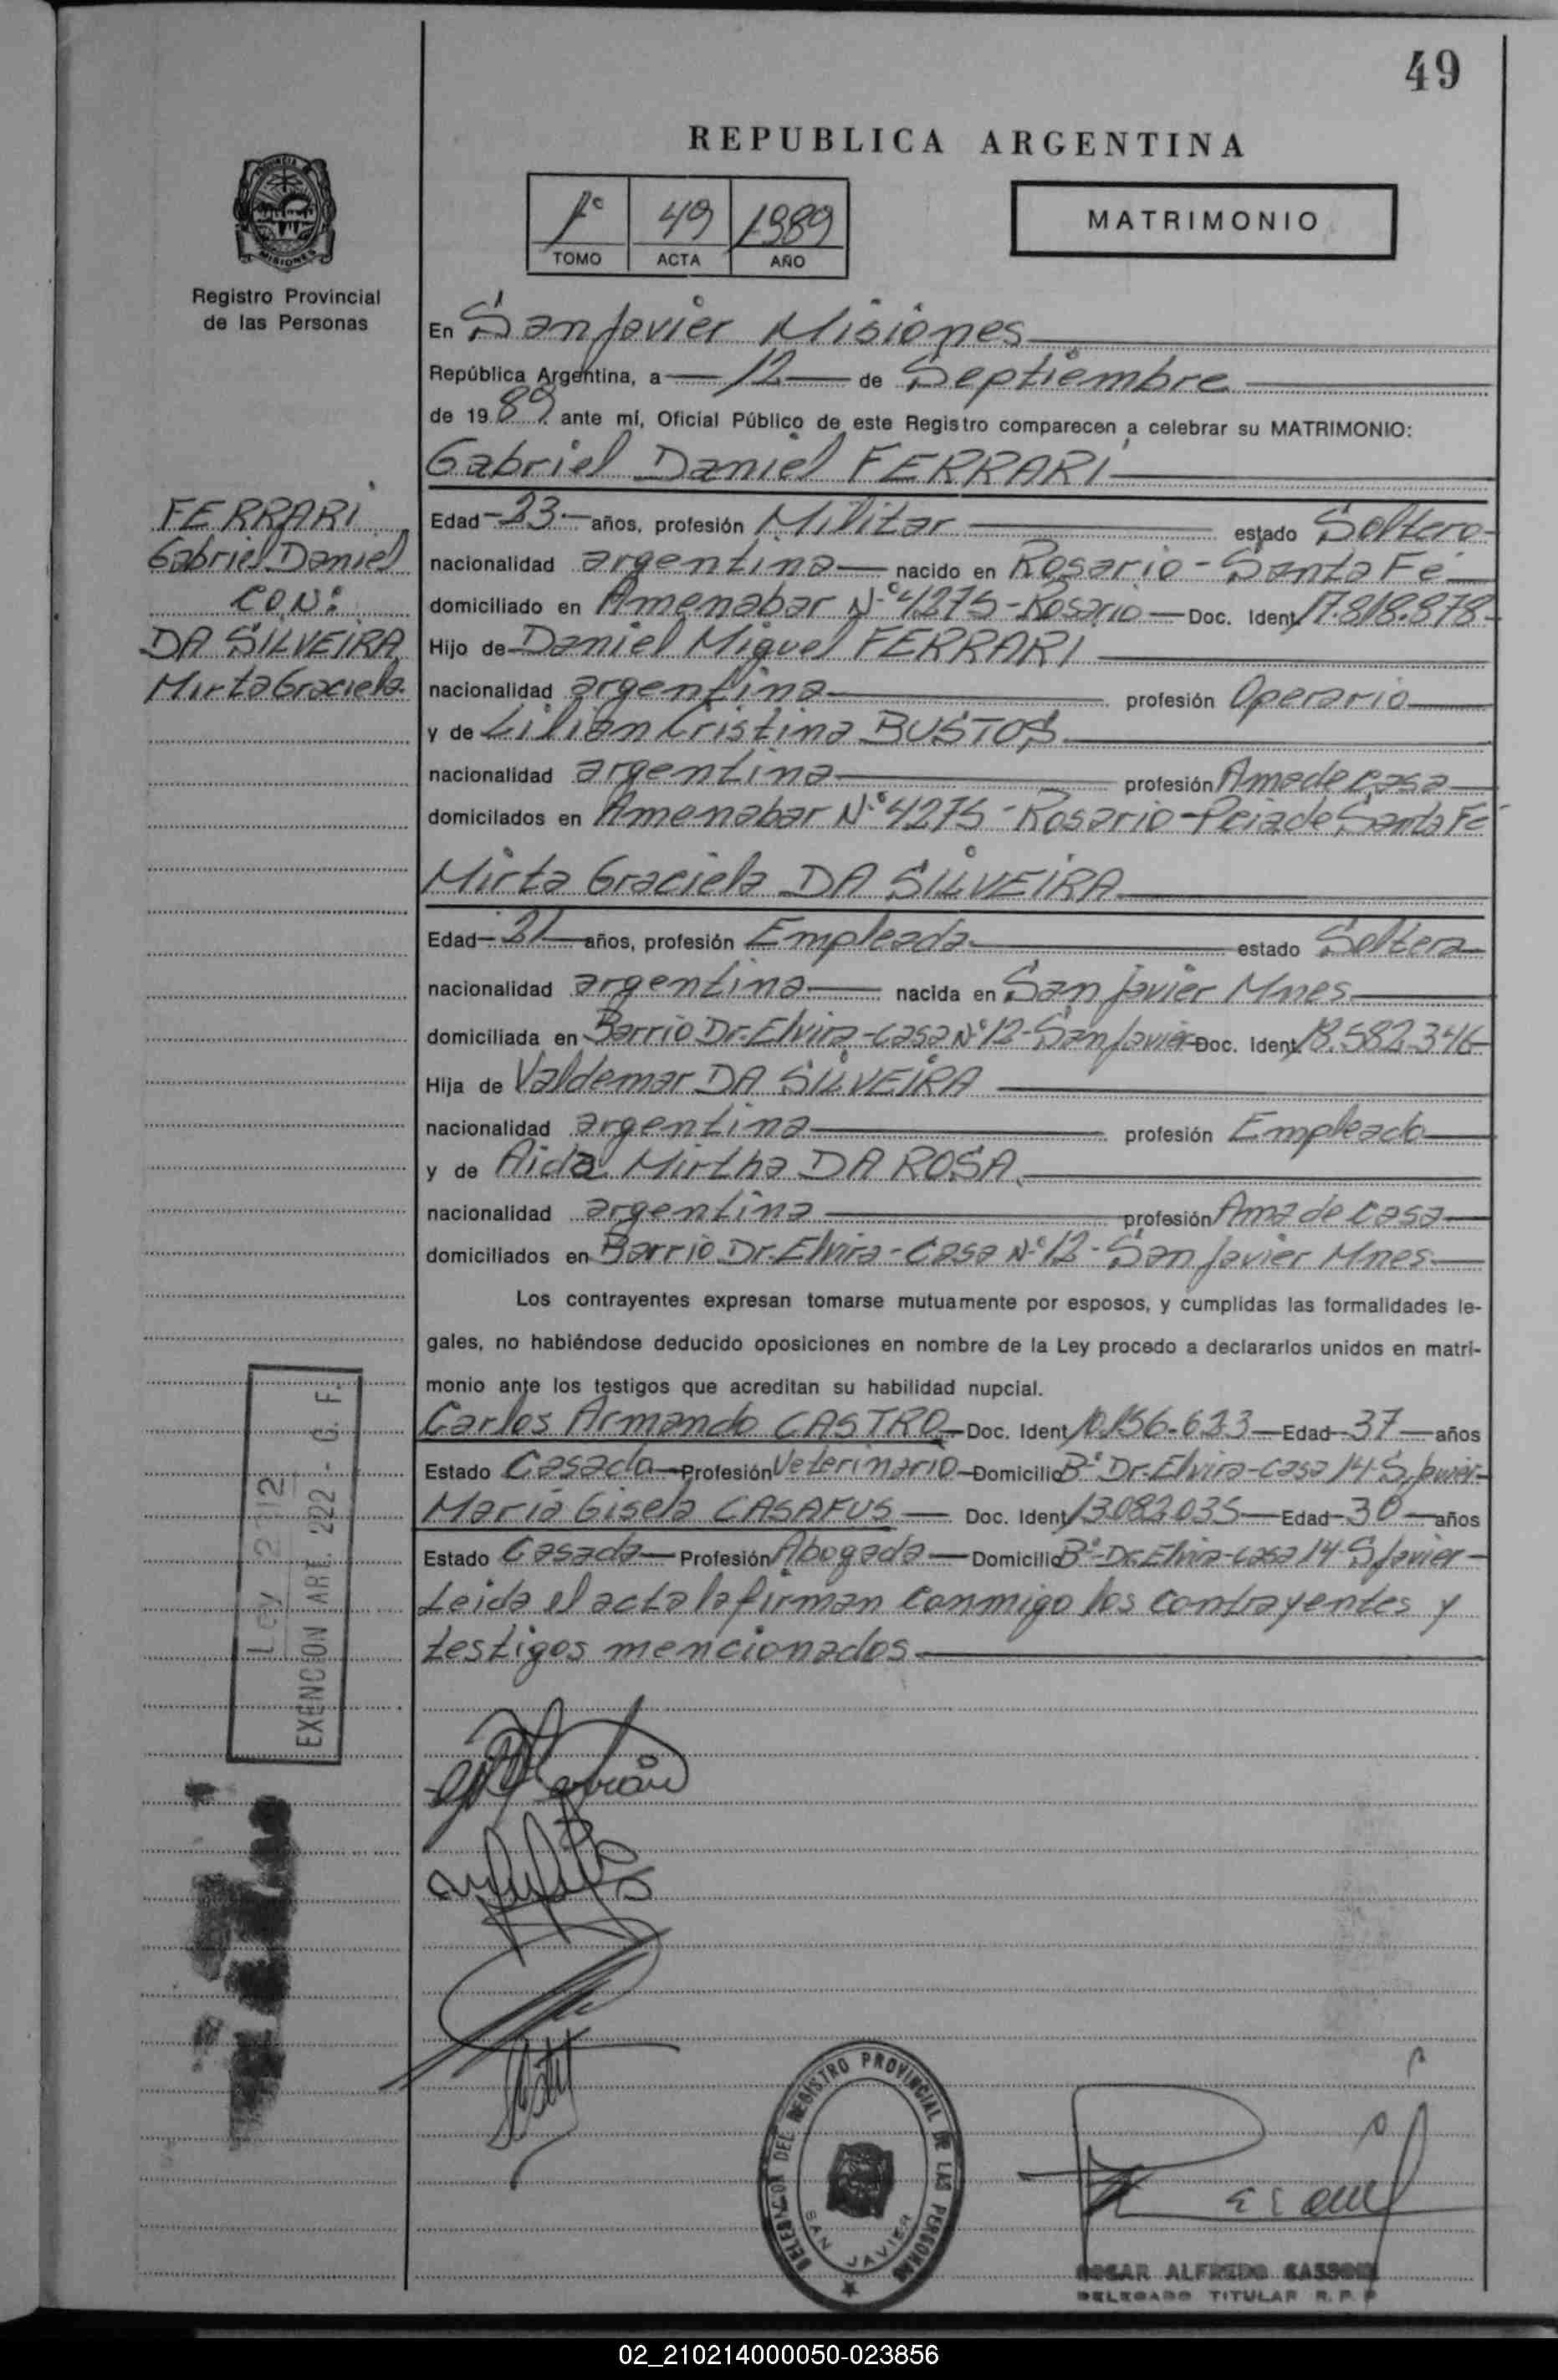 49
REPUBLICA ARGENTINA
1º 49 1989
TOMO ACTA AÑO
MATRIMONIO
PROVINCIA
MISIONES
Registro Provincial
de las Personas
En San Javier Misiones
República Argentina, a 12 de Septiembre
de 19 89 ante mí, Oficial Público de este Registro comparecen a celebrar su MATRIMONIO:
Gabriel Daniel FERRARI
FERRARI
Gabriel Daniel
CON:
DA SILVEIRA
Mirta Graciela
Edad - 23 - años, profesión Militar estado Soltero
nacionalidad argentina nacido en Rosario - Santa Fé
domiciliado en Amenabar N.º 4275 - Rosario Doc. Ident. 17.818.878
Hijo de Daniel Miguel FERRARI
nacionalidad argentina profesión Operario
y de Lilian Cristina BUSTOS
nacionalidad argentina profesión Ama de casa
domicilados en Amenabar N.º 4275 - Rosario - Pcia de Santa Fé
Mirta Graciela DA SILVEIRA
Edad - 21 años, profesión Empleada estado Soltera
nacionalidad argentina nacida en San Javier Mnes
domiciliada en Barrio Dr. Elvira - casa Nº 12 - San Javier Doc. Ident. 18.582.346
Hija de Valdemar DA SILVEIRA
nacionalidad argentina profesión Empleado
y de Aida Mirtha DA ROSA
nacionalidad argentina profesión Ama de casa
domiciliados en Barrio Dr. Elvira - Casa N.º 12 - San Javier Mnes
Los contrayentes expresan tomarse mutuamente por esposos, y cumplidas las formalidades le-
gales, no habiéndose deducido oposiciones en nombre de la Ley procedo a declararlos unidos en matri-
monio ante los testigos que acreditan su habilidad nupcial.
Carlos Armando CASTRO Doc. Ident. 10.156.633 Edad 37 años
Estado Casado Profesión Veterinario Domicilio Bº Dr. Elvira - casa 14 - S. Javier
María Gisela CASAFUS Doc. Ident. 13.082.035 Edad 30 años
Estado Casada Profesión Abogada Domicilio Bº - Dr. Elvira - casa 14 - S Javier
Leida el acta la firman conmigo los contrayentes y
testigos mencionados
Ley 2112
EXENCION ART. 222 - G. F.
DELEGACION DEL REGISTRO PROVINCIAL DE LAS PERSONAS
SAN JAVIER
ALFREDO
DELEGADO TITULAR R. P. P
02_210214000050-023856